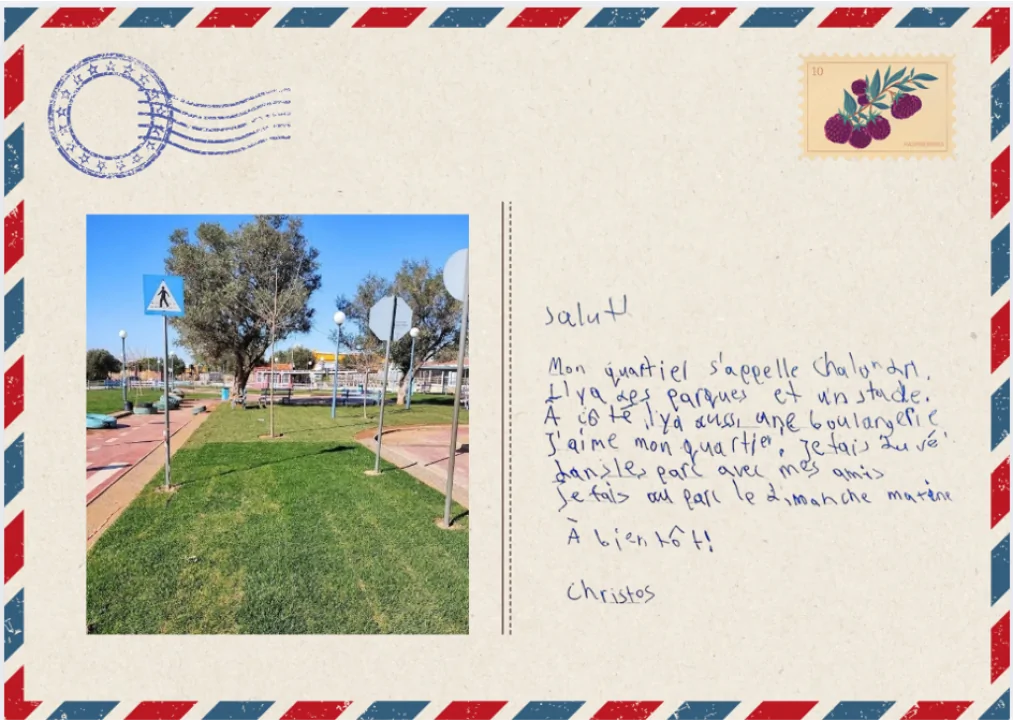 10
Salut!
Mon quartiel s'appelle Chalandri.
Il ya des parques et un stade.
À côté il ya aussi une boulangerie
J'aime mon quartier, je fais du vélo
dans les parc avec mes amis
je fais au parc le dimanche matine
À bientôt!
Christos